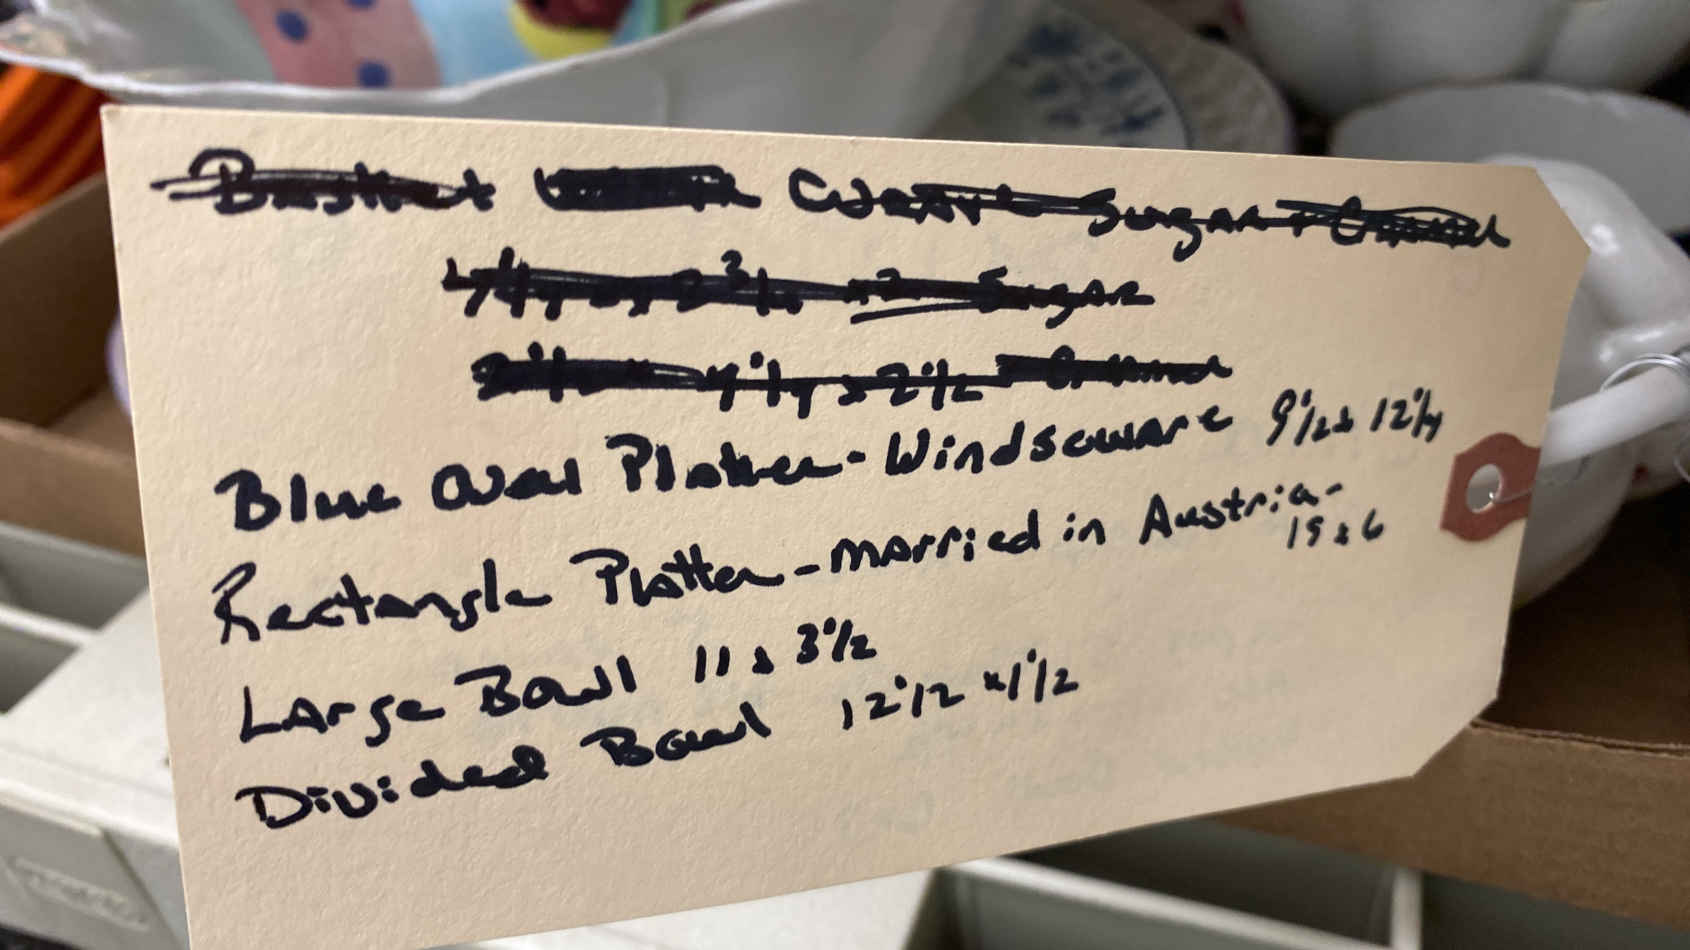 Sugar
Sugar
4 1/4 x 2 1/2
Blue Oval Platter - Windsorware 9 1/2 x 12 1/4
Rectangle Platter - married in Austria -
15 x 6
Large Bowl 11 x 3 1/2
Divided Bowl 12 1/2 x 1 1/2